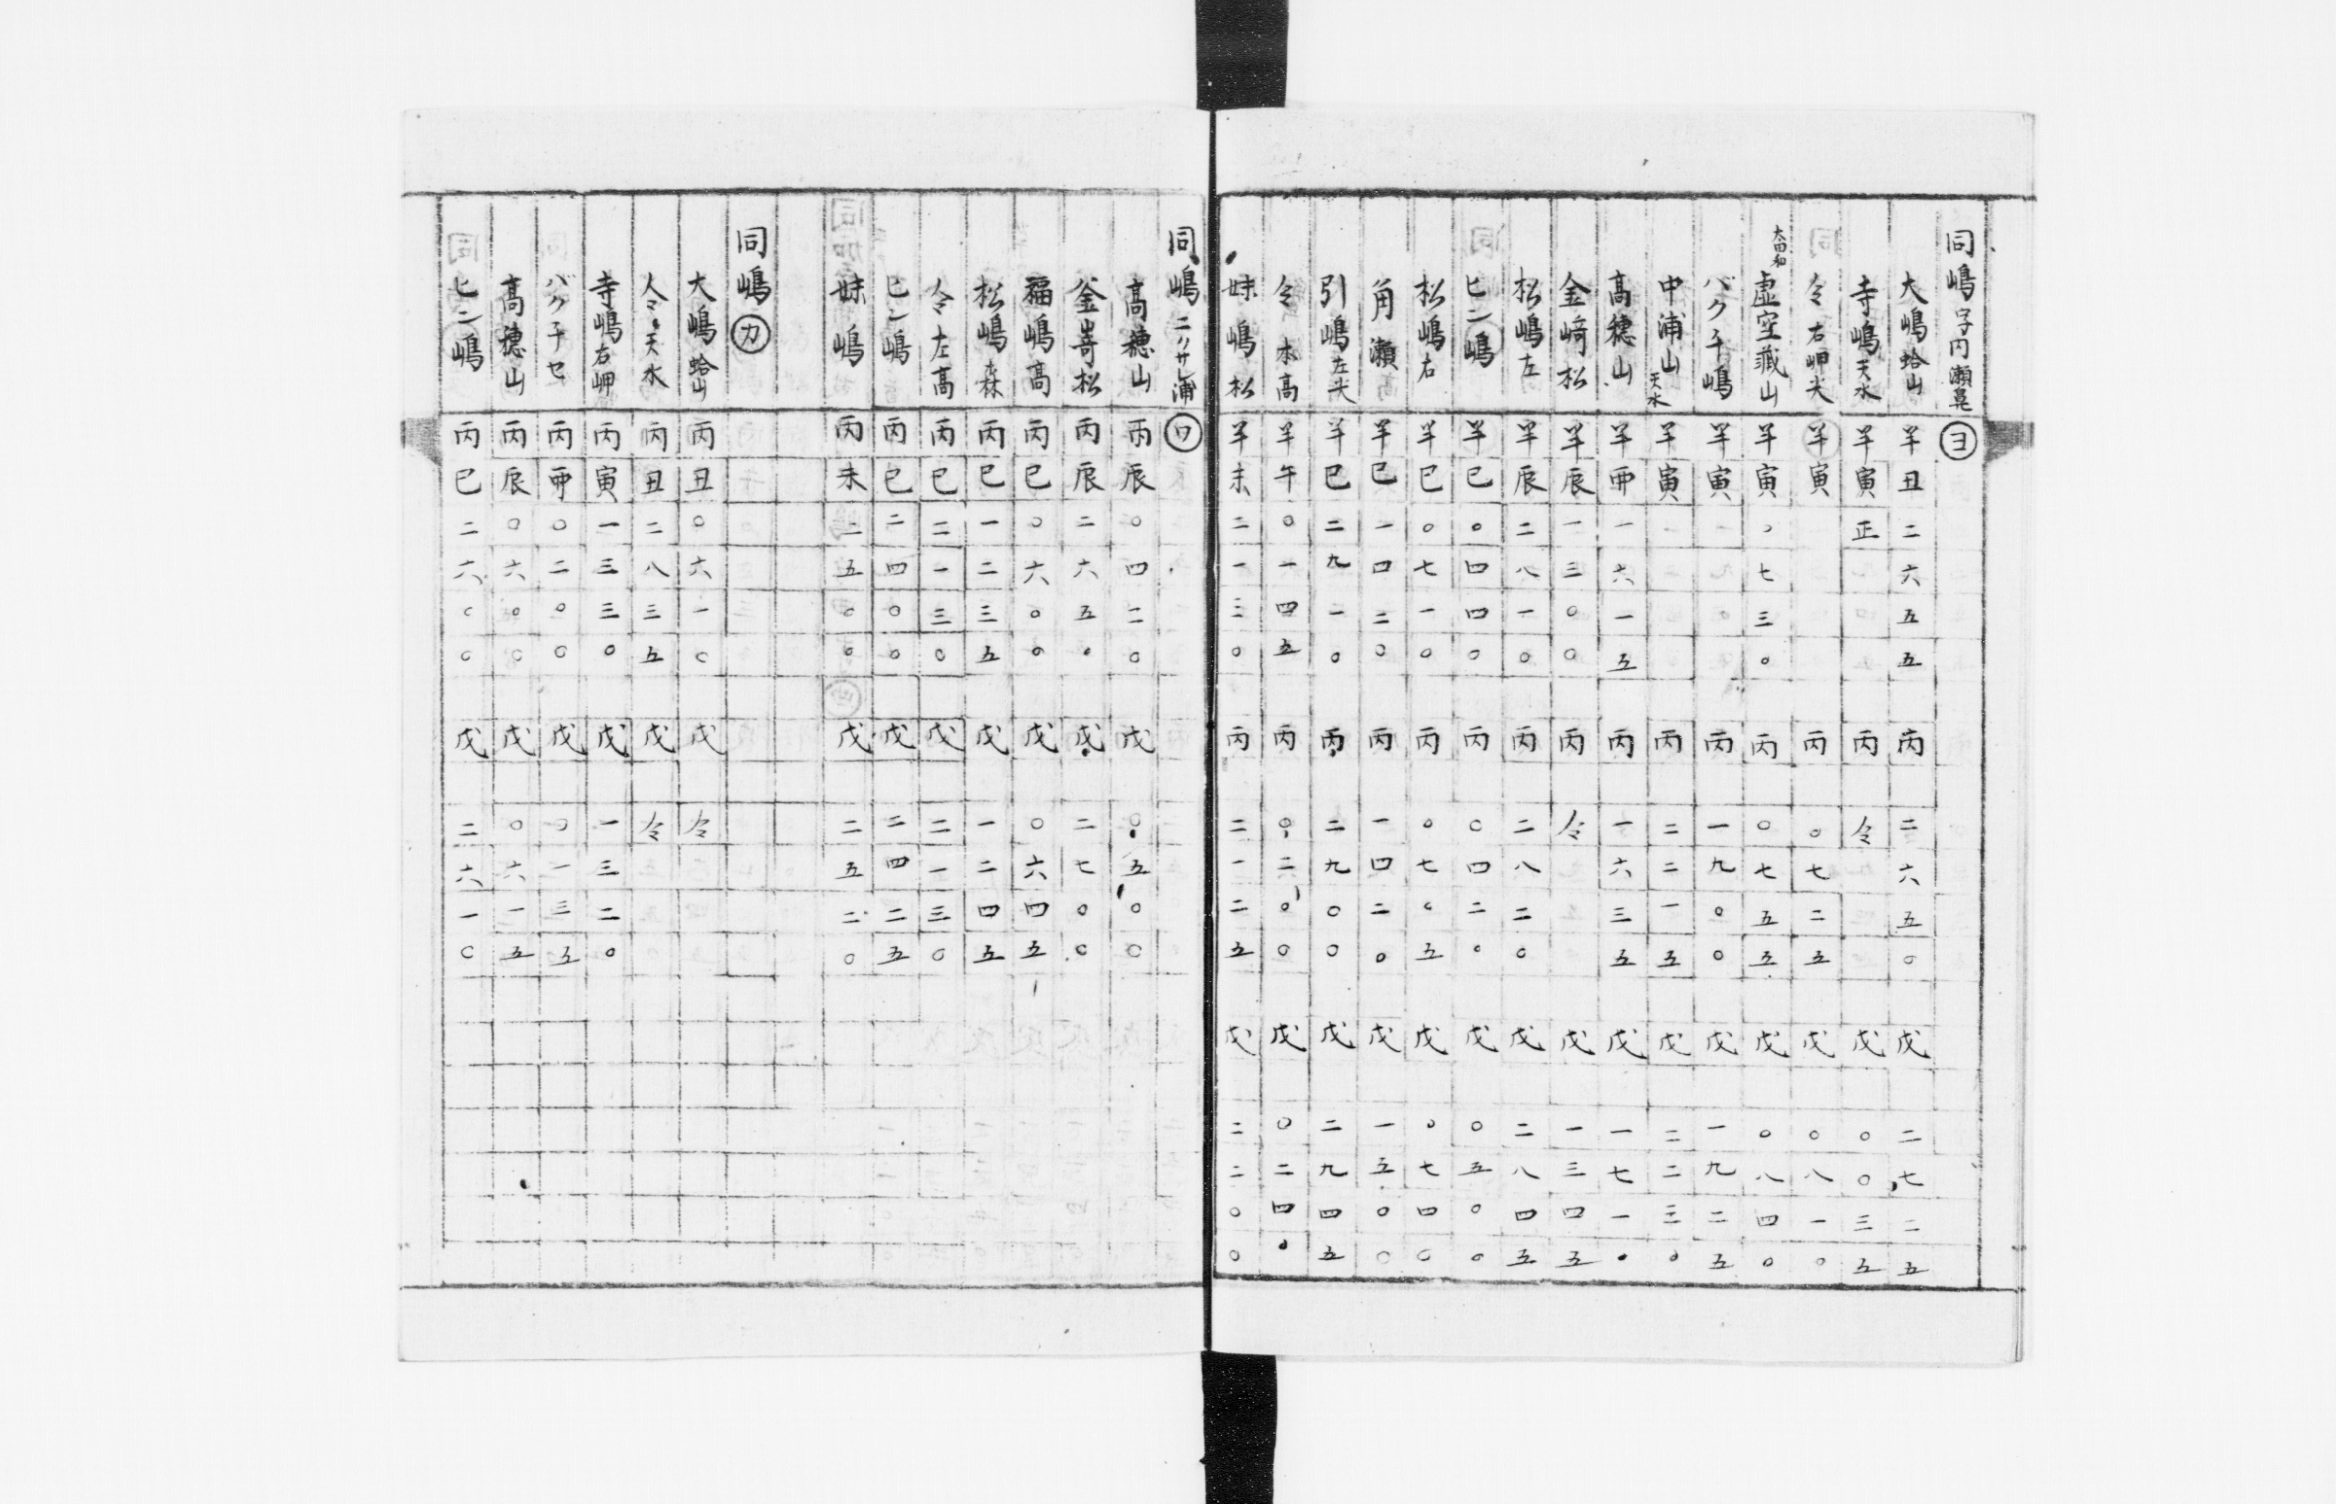 同嶋 字円瀬鼻 ヨ
大嶋蛤山 羊丑 二六五五 丙 二六五〇 戊 二七二五
寺嶋天水 羊寅 正 丙 仝 戊 〇〇三五
仝右岬尖 羊寅 丙 〇七二五 戊 〇八一〇
太田和 虚空藏山 羊寅 〇七三〇 丙 〇七五五 戊 〇八四〇
バク千嶋 羊寅 丙 一九〇〇 戊 一九二五
中浦山天水 羊寅 丙 二二一五 戊 二二三〇
高穂山 羊卯 一六一五 丙 一六三五 戊 一七一〇
金﨑松 羊辰 一三〇〇 丙 仝 戊 一三四五
松嶋左 羊辰 二八一〇 丙 二八二〇 戊 二八四五
ヒン嶋 羊巳 〇四四〇 丙 〇四二〇 戊 〇五〇〇
松嶋右 羊巳 〇七一〇 丙 〇七〇五 戊 〇七四〇
角瀬 羊巳 一四二〇 丙 一四二〇 戊 一五〇〇
引嶋左尖 羊巳 二九一〇 丙 二九〇〇 戊 二九四五
仝本高 羊午 〇一四五 丙 〇二〇〇 戊 〇二四〇
妹嶋松 羊未 二一三〇 丙 二一二五 戊 二二〇〇
同嶋 ニノサレ浦 ワ
高穂山 丙辰 〇四二〇 戊 〇五〇〇
釜﨑松 丙辰 二六五〇 戊 二七〇〇
福嶋高 丙巳 〇六〇〇 戊 〇六四五
松嶋森 丙巳 一二三五 戊 一二四五
仝左高 丙巳 二一三〇 戊 二一三〇
ヒン嶋 丙巳 二四〇〇 戊 二四二五
妹嶋 丙未 二五〇〇 戊 二五二〇
同嶋 カ
大嶋蛤山 丙丑 〇六一〇 戊 仝
仝天水 丙丑 二八三五 戊 仝
寺嶋右岬 丙寅 一三三〇 戊 一三二〇
バク千セ 丙卯 〇二〇〇 戊 〇一三五
高穂山 丙辰 〇六〇〇 戊 〇六一五
ヒン嶋 丙巳 二六〇〇 戊 二六一〇